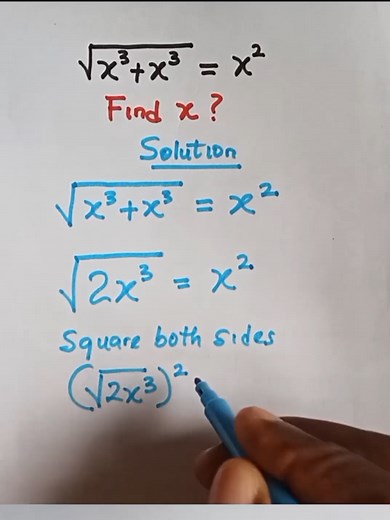 √(x³+x³) = x²
Find x ?
Solution
√(x³+x³) = x²
√(2x³) = x²
Square both sides
(√(2x³))²